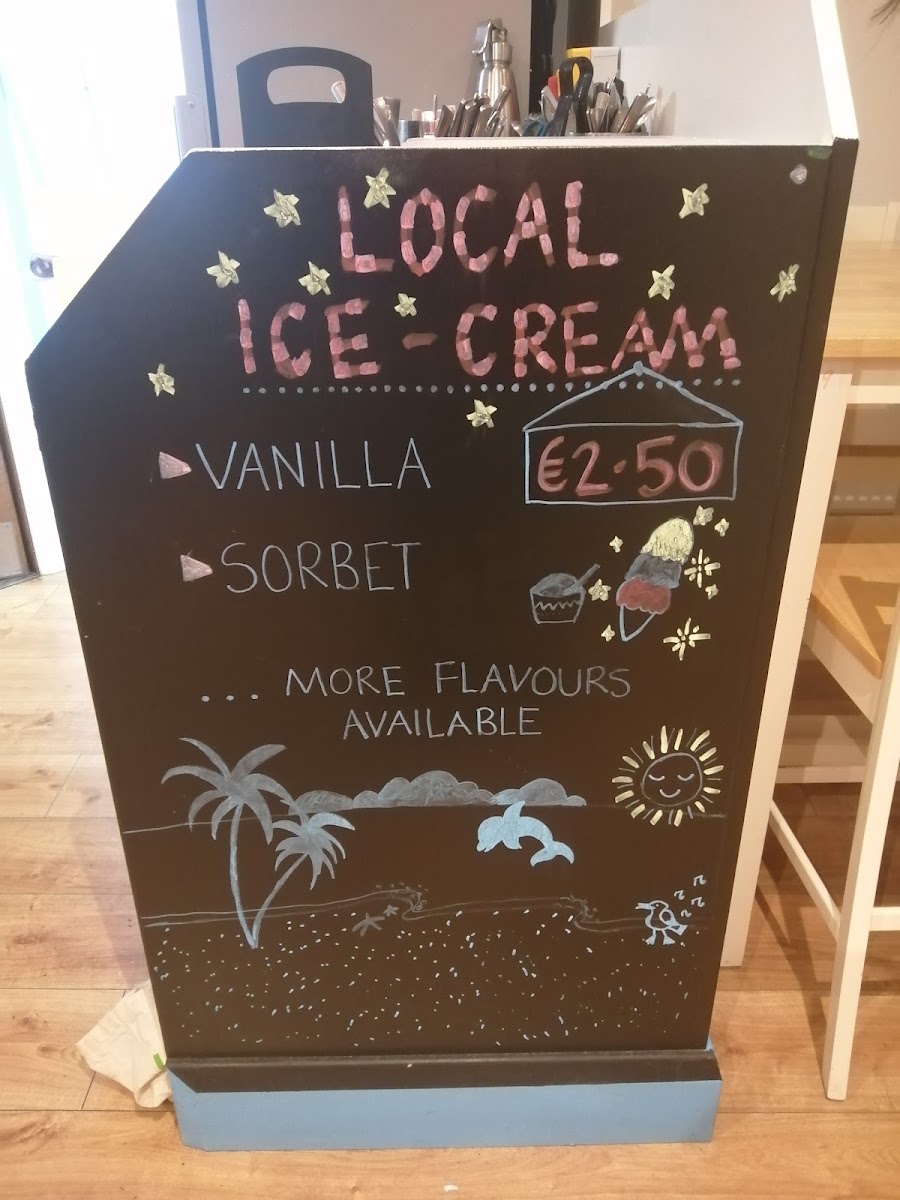 LOCAL
ICE-CREAM
VANILLA
€2.50
SORBET
... MORE FLAVOURS
AVAILABLE